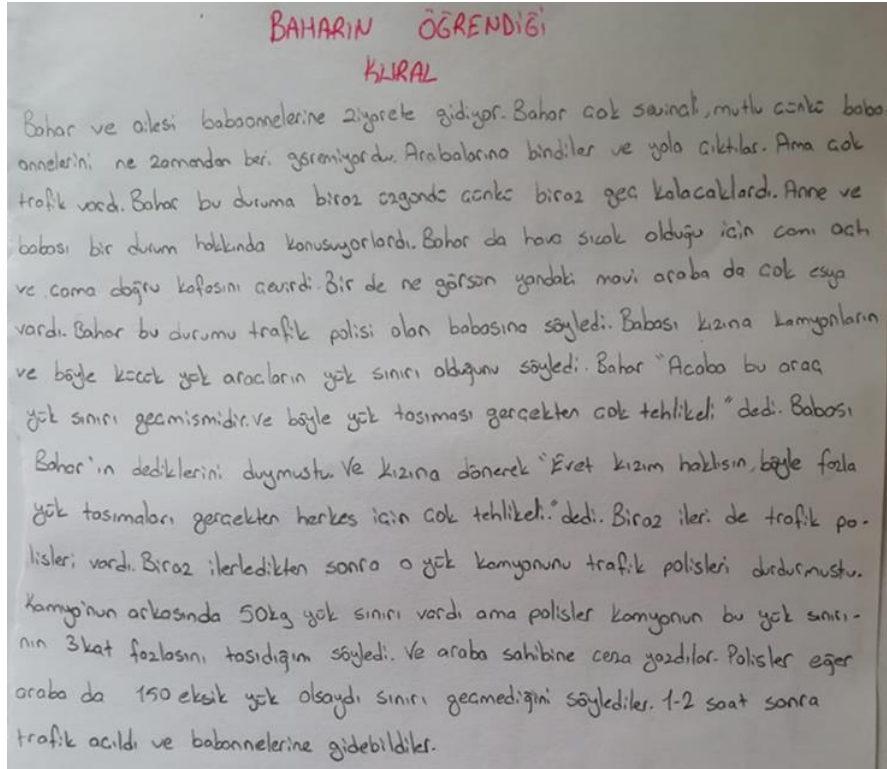 BAHARIN ÖĞRENDİĞİ
KURAL
Bahar ve ailesi babaannelerine ziyarete gidiyor. Bahar çok sevinçli, mutlu çünkü baba
annelerini ne zamandan beri göremiyordu. Arabalarına bindiler ve yola çıktılar. Ama çok
trafik vardı. Bahar bu duruma biraz üzgündü çünkü biraz geç kalacaklardı. Anne ve
babası bir durum hakkında konusuyorlardı. Bahar da hava sıcak olduğu için camı actı
ve cama doğru kafasını çevirdi. Bir de ne görsün yandaki mavi araba da çok esya
vardı. Bahar bu durumu trafik polisi olan babasına söyledi. Babası kızına kamyonların
ve böyle küçük yük araçların yük sınırı olduğunu söyledi. Bahar "Acaba bu araç
yük sınırı geçmismidir. ve böyle yük tasıması gerçekten çok tehlikeli" dedi. Babası
Bahar'ın dediklerini duymustu. Ve kızına dönerek "Evet kızım haklısın, böyle fazla
yük tasımaları gerçekten herkes için çok tehlikeli." dedi. Biraz ileri de trafik po-
lisleri vardı. Biraz ilerledikten sonra o yük kamyonunu trafik polisleri durdurmustu.
Kamyo'nun arkasında 50kg yük sınırı vardı ama polisler kamyonun bu yük sınırı-
nın 3 kat fazlasını tasıdığını söyledi. Ve araba sahibine ceza yazdılar. Polisler eğer
araba da 150 eksik yük olsaydı sınırı geçmediğini söylediler. 1-2 saat sonra
trafik açıldı ve babannelerine gidebildiler.